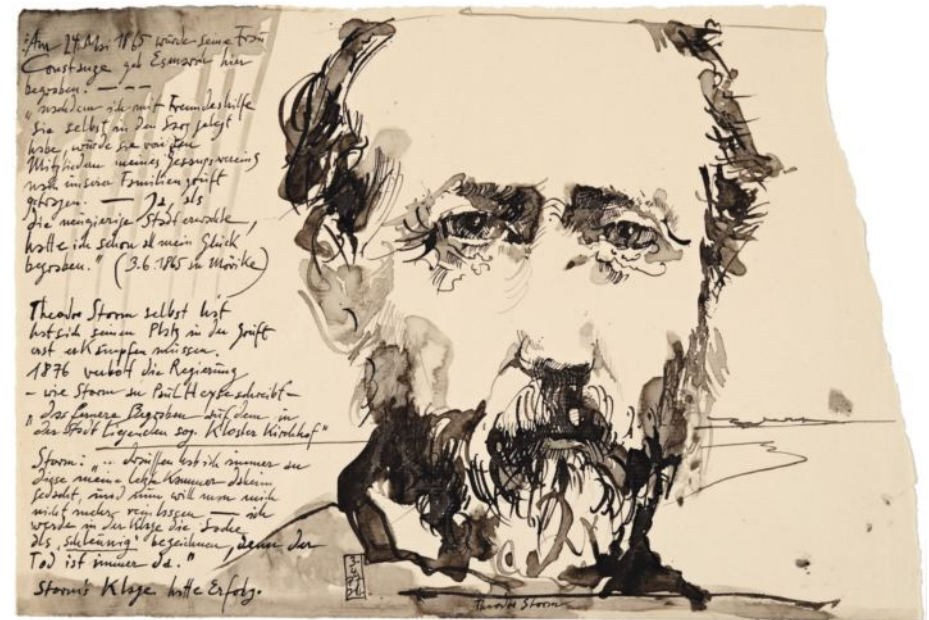 "Am 24. Mai 1865 wurde seine Frau
Constanze geb Esmarch hier
begraben. — — —
"nachdem ich mit Freundeshilfe
sie selbst in den Sarg gelegt
habe, wurde sie von den
Mitgliedern meines Gesangvereins
nach unserer Familiengruft
getragen. — Ja, als
die neugierige Stadt erwachte,
hatte ich schon all mein Glück
begraben." (3.6.1865 an Mörike)
Theodor Storm selbst hat
hat sich seinen Platz in der Gruft
erst erkämpfen müssen.
1876 verbot die Regierung
- wie Storm an Paul Heyse schreibt -
"das fernere Begraben auf dem in
der Stadt liegenden sog. Kloster Kirchhof"
Storm: ".. draußen hat ich immer an
diese meine letzte Kammer daheim
gedacht, und nun will man mich
nicht mehr reinlassen — ich
werde in der Klage die Sache
als "schleunig" bezeichnen, denn der
Tod ist immer da."
Storm's Klage hatte Erfolg.
Theodor Storm